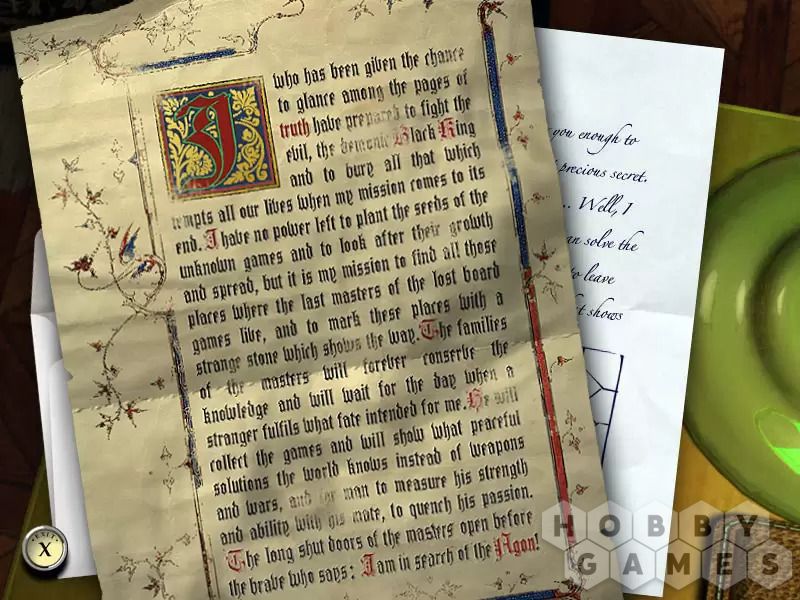 I who has been given the chance
to glance among the pages of
truth have prepared to fight the
evil, the demonic Black King
and to bury all that which
tempts all our lives when my mission comes to its
end. I have no power left to plant the seeds of the
unknown games and to look after their growth
and spread, but it is my mission to find all those
places where the last masters of the lost board
games live, and to mark these places with a
strange stone which shows the way. The families
of the masters will forever conserve the
knowledge and will wait for the day when a
stranger fulfils what fate intended for me. He will
collect the games and will show what peaceful
solutions the world knows instead of weapons
and wars, and for man to measure his strength
and ability with his mate, to quench his passion.
The long shut doors of the masters open before
the brave who says: I am in search of the Agon!
you enough to
precious secret.
... Well, I
can solve the
to leave
shows
EXIT
X
HOBBY
GAMES